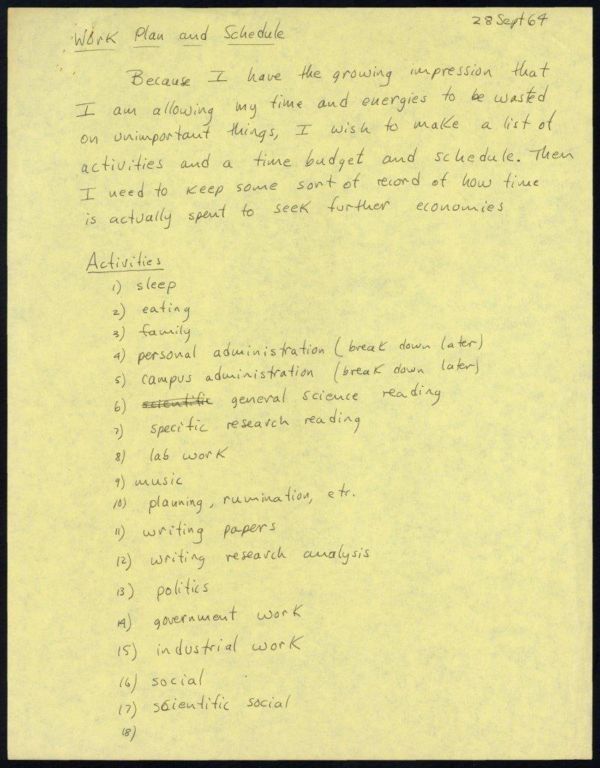 28 Sept 64
Work Plan and Schedule
Because I have the growing impression that
I am allowing my time and energies to be wasted
on unimportant things, I wish to make a list of
activities and a time budget and schedule. Then
I need to keep some sort of record of how time
is actually spent to seek further economies
Activities
1) sleep
2) eating
3) family
4) personal administration (break down later)
5) campus administration (break down later)
6) scientific general science reading
7) specific research reading
8) lab work
9) music
10) planning, rumination, etc.
11) writing papers
12) writing research analysis
13) politics
14) government work
15) industrial work
16) social
17) scientific social
18)